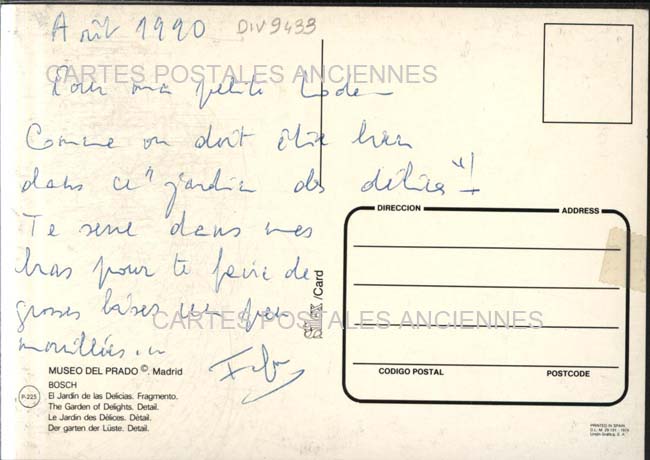 Août 1990 DIV9433
CARTES POSTALES ANCIENNES
Pour ma petite
Comme on doit être bien
dans ce "jardin des délices"!
Te serre dans mes
bras pour te faire de
grosses bises un peu
mouillées...
CARTES POSTALES ANCIENNES
DIRECCION ADDRESS
CODIGO POSTAL POSTCODE
/Card
MUSEO DEL PRADO ©. Madrid
P-225
BOSCH
El Jardin de las Delicias. Fragmento.
The Garden of Delights. Detail.
Le Jardin des Délices. Détail.
Der garten der Lüste. Detail.
PRINTED IN SPAIN